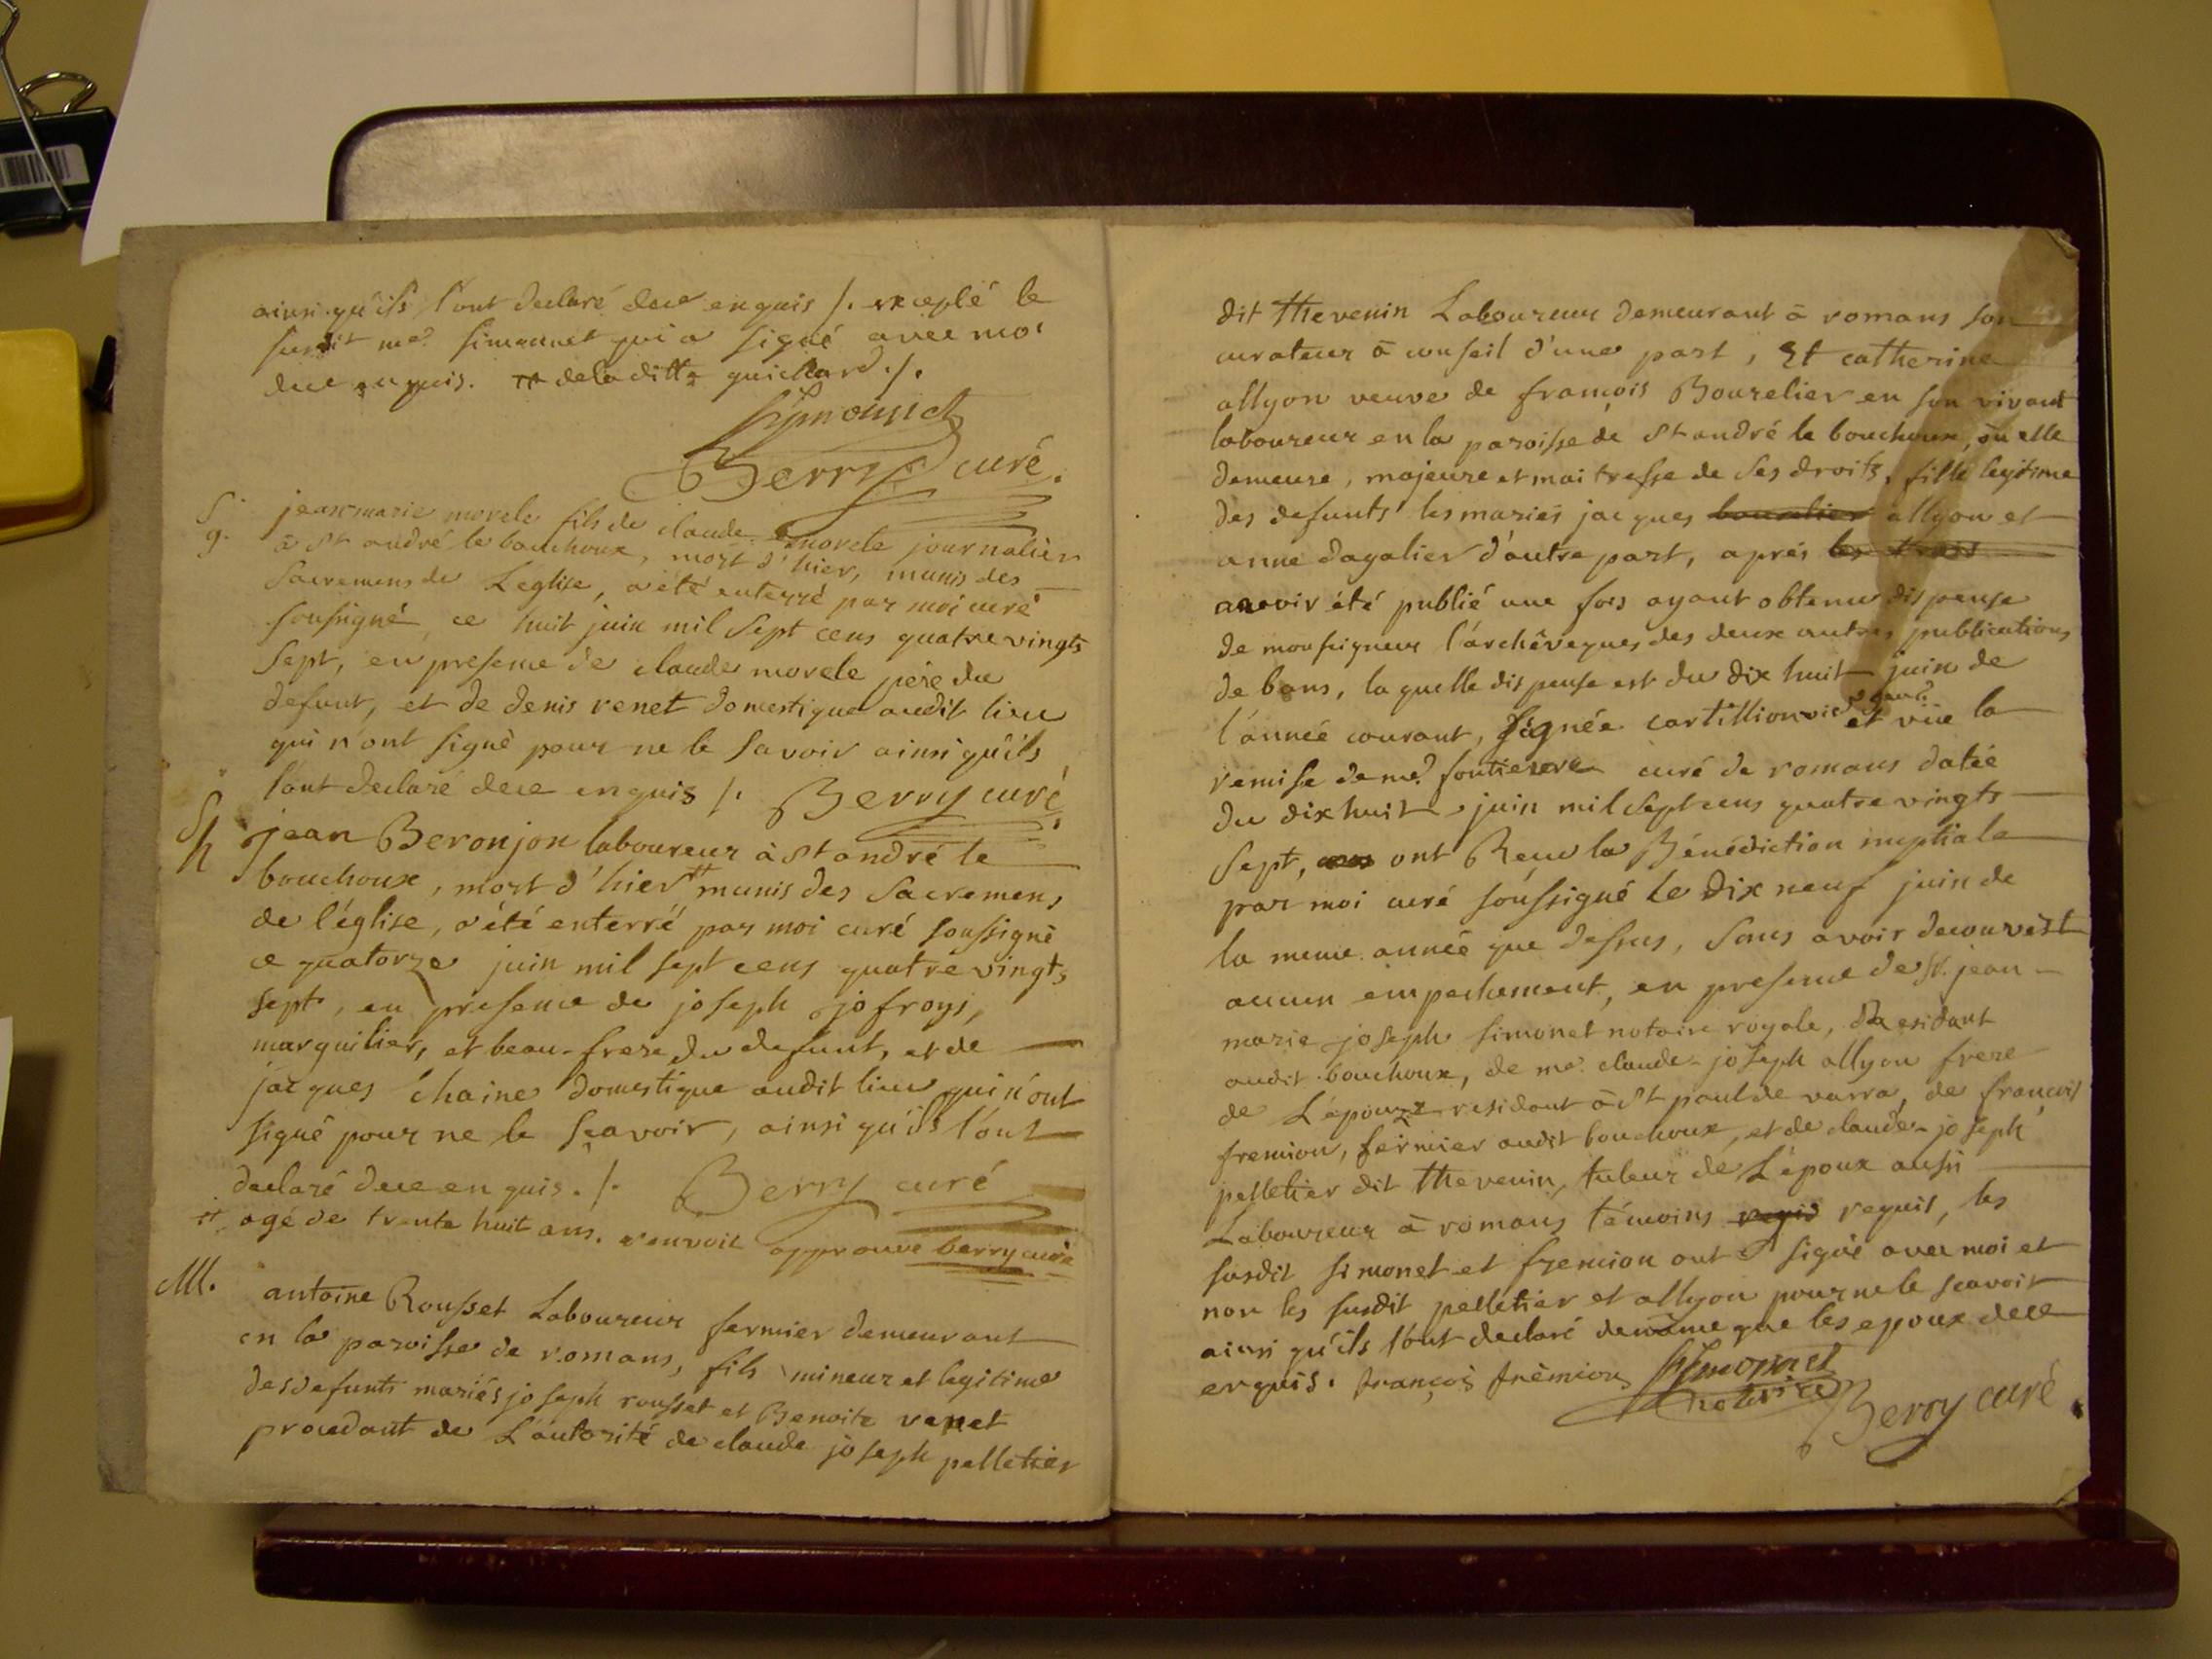 ainsi qu'ils l'ont declaré dece enquis /. excepté le
susdit me. simonnet qui a signé avec moi
dece enquis. ++ de la ditte guichard ./.
Symonnet
Berry curé.
S
g. jean marie morele fils de claude morele journalier
à st andré le bouchoux, mort d'hier, munis des
Sacremens de Leglise, a été enterré par moi curé
sousigné, ce huit juin mil Sept cens quatre vingts
Sept, en presence de claude morele pere du
defunt, et de denis renet domestique audit lieu
qui n'ont signé pour ne le savoir ainsi qu'ils
l'ont declaré dece enquis /. Berry curé
S
h jean Beronjon laboureur à st andré le
bouchoux, mort d'hier ++ munis des Sacremens
de l'église, a été enterré par moi curé soussigné
ce quatorze juin mil sept cens quatre vingts
sept, en presence de joseph jofroys,
marguilier, et beau-frere du defunt, et de
jacques chaine domestique audit lieu qui n'ont
signé pour ne le sçavoir, ainsi qu'ils l'ont
declaré dece enquis. /. Berry curé
++ agé de trente huit ans. renvoit approuvé berry curé
M. antoine Rousset Laboureur fermier demeurant
en la paroisse de romans, fils mineur et legitime
des defunts mariés joseph rousset et Benoite venet
procedant de L'autorité de claude joseph pelletier
dit thevenin Laboureur demeurant à romans son
curateur à conseil d'une part, Et catherine
allyon veuve de françois Bourelier en son vivant
laboureur en la paroisse de st andré le bouchoux, où elle
demeure, majeure et maitresse de ses droits, fille legitime
des defunts les mariés jacques bourelier allyon et
anne dagalier d'autre part, aprés les trois
avoir été publié une fois ayant obtenu dispense
de monsigneur l'archêveques des deux autres publications
de bans, la quelle dispense est du dix huit juin de
l'année courant, signée cortillion vic. gene. et vüe la
remise de me. soutierre curé de romans datée
du dix huit juin mil sept cens quatre vingts
Sept, ont Recu la Bénédiction nuptiale
par moi curé soussigné Le dix neuf juin de
la meme année que dessus, Sans avoir decouvert
aucun empechement, en presence de sr. jean
marie joseph simonet notaire royale, Residant
audit bouchoux, de me. claude-joseph allyon frere
de L'épouze residant à st paul de varra, de françois
fremion, fermier audit bouchoux, et de claude-joseph
pelletier dit thevenin, tuteur de L'époux aussi
Laboureur à romans témoins requis requis, les
susdit simonet et fremion ont signé avec moi et
non les susdit pelletier et allyon pour ne le scavoir
ainsi qu'ils l'ont declaré de même que les epoux dece
enquis. françois frèmion Symonnet
notaire Berry curé